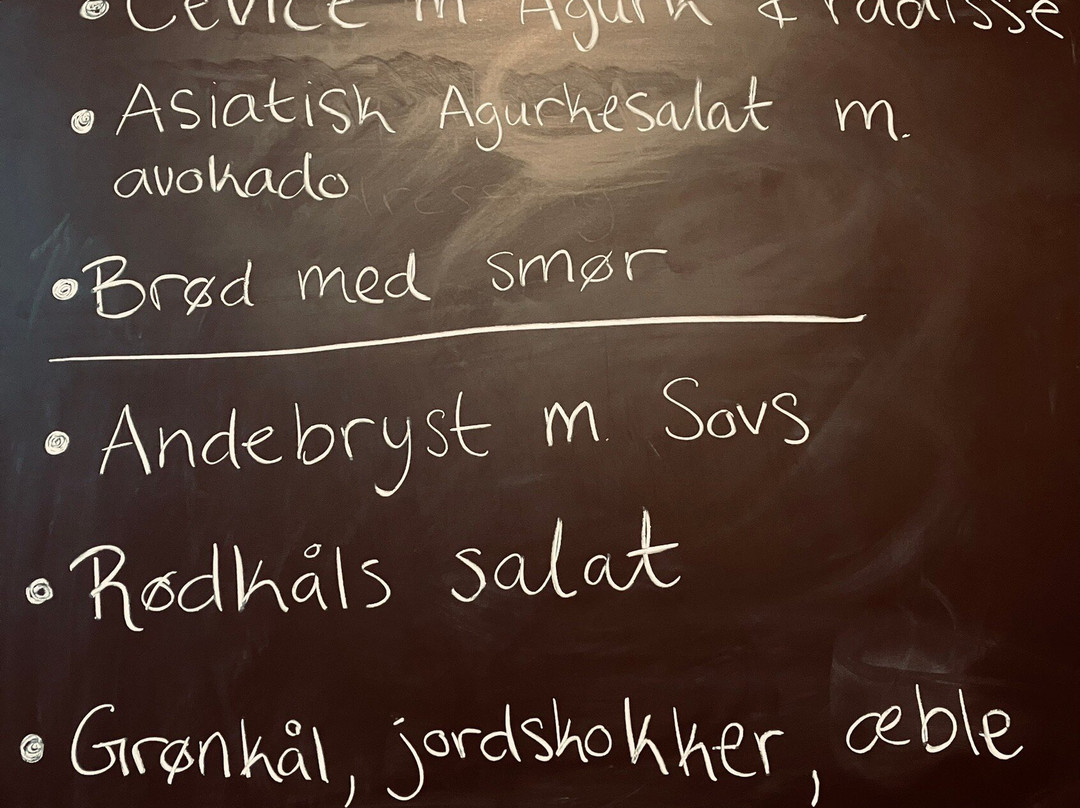 • Cevice m. Agurk & radisse
• Asiatisk Agurkesalat m.
avokado
• Brød med smør
• Andebryst m. Sovs
• Rødkåls salat
• Grønkål, jordskokker, æble